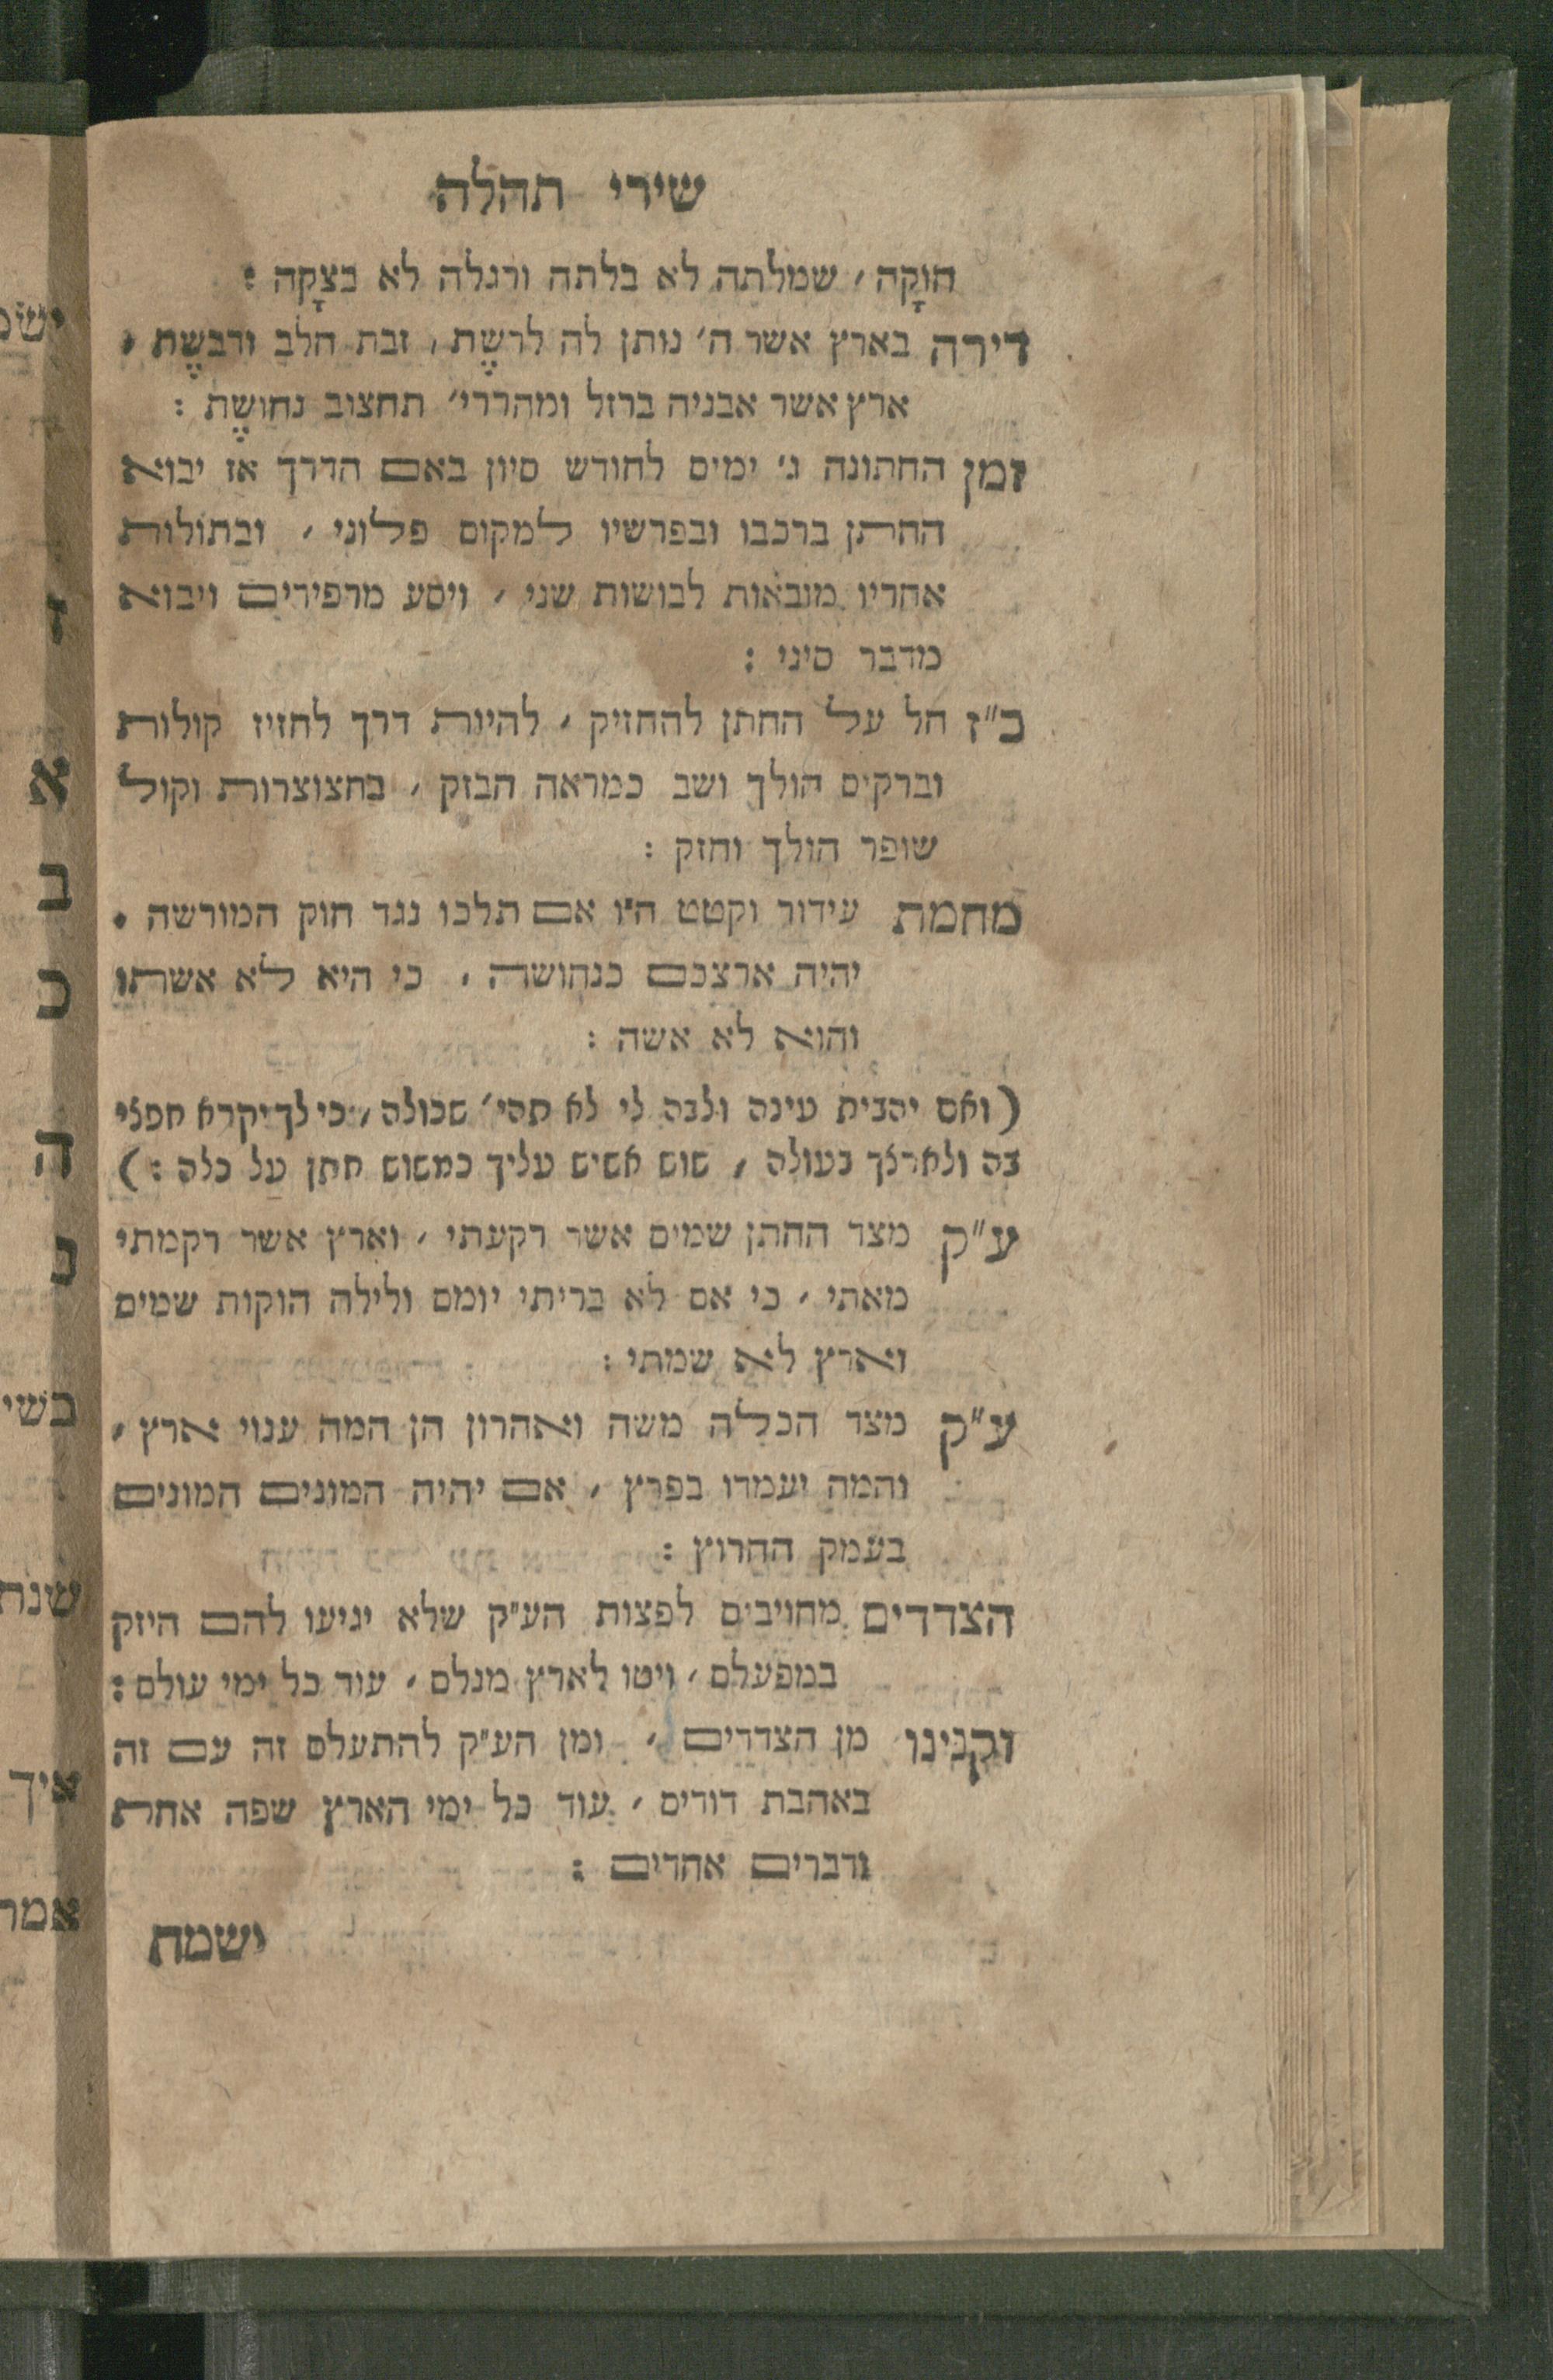 שירי תהלה
חוקָה, שמלתה לא בלתה ורגלה לא בצקָה:
דירה בארץ אשר ה׳ נותן לה לרשֶת, זבת חלב ודבשֶת,
ארץ אשר אבניה ברזל ומהררי׳ תחצוב נחושֶת:
זמן החתונה ג׳ ימים לחודש סיון באם הדרך אז יבוא
החתן ברכבו ובפרשיו למקום פלוני, ובתולות
אחריו מובאות לבושות שני, ויסע מרפידים ויבוא
מדבר סיני:
ב״ז חל על החתן להחזיק, להיות דרך לחזיז קולות
וברקים הולך ושב כמראה הבזק, בחצוצרות וקול
שופר הולך וחזק:
מחמת עידור וקטט ח״ו אם תלכו נגד חוק המורשה.
יהיה ארצכם כנחושה, כי היא לא אשתו
והוא לא אשה:
(ואם יהבית עינה ולבה לי לא תהי׳ שכולה, כי לך יקרא חפצי
בה ולארצך בעולה, שוש אשיש עליך כמשוש חתן על כלה:)
ע״ק מצד החתן שמים אשר רקעתי, וארץ אשר רקמתי
מאתי, כי אם לא בריתי יומם ולילה הוקות שמים
וארץ לא שמתי:
ע״ק מצד הכלה משה ואהרון הן המה ענוי ארץ,
והמה יעמדו בפרץ, אם יהיה המונים המונים
בעמק החרוץ:
הצדדים מחויבים לפצות הע״ק שלא יגיעו להם היזק
במפעלם, ויטו לארץ מנלם, עוד כל ימי עולם:
וקנינו מן הצדדים, ומן הע״ק להתעלס זה עם זה
באהבת דודים, עוד כל ימי הארץ שפה אחת
ודברים אחדים:
ישמח